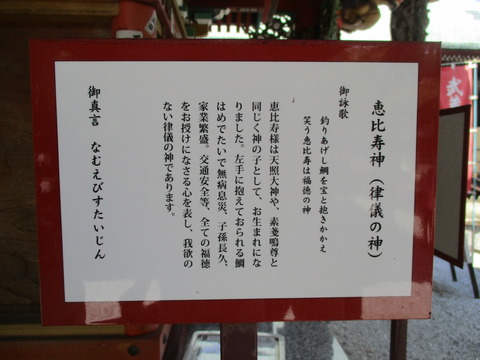 恵比寿神（律儀の神）
御詠歌
釣りあげし鯛を宝と抱きかかえ
笑う恵比寿は福徳の神
恵比寿様は天照大神や、素戔嗚尊と
同じく神の子として、お生まれにな
りました。左手に抱えておられる鯛
はめでたいで無病息災、子孫長久、
家業繁盛。交通安全等、全ての福徳
をお授けになさる心を表し、我欲の
ない律儀の神であります。
御真言　なむえびすたいじん